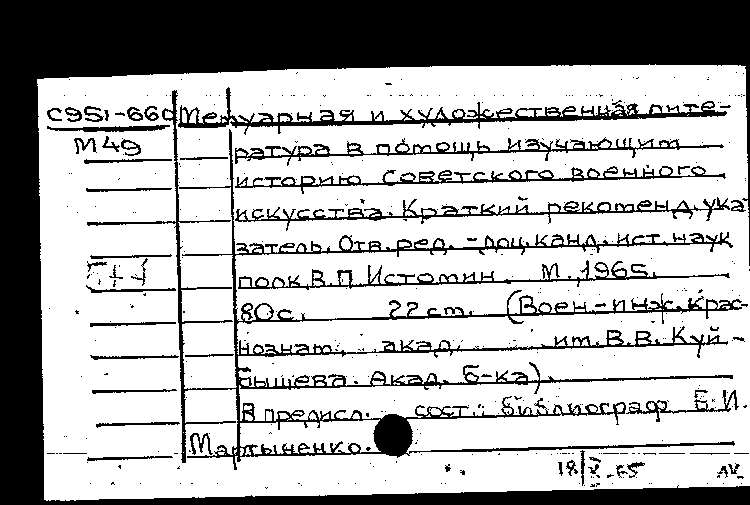 С951-660 Мемуарная и художественная лите-
М49 ратура в помощь изучающим
историю советского военного
искусства. Краткий рекоменд. ука
затель. Отв. ред. - доц. канд. ист. наук
полк. В.П Истомин. М., 1965.
80с. 22 cm. (Воен.-инж. Крас-
нознам. акад. им. В.В. Куй-
бышева. Акад. б-ка).
В предисл. сост.: библиограф Б.И.
Мартыненко.
18/X-65